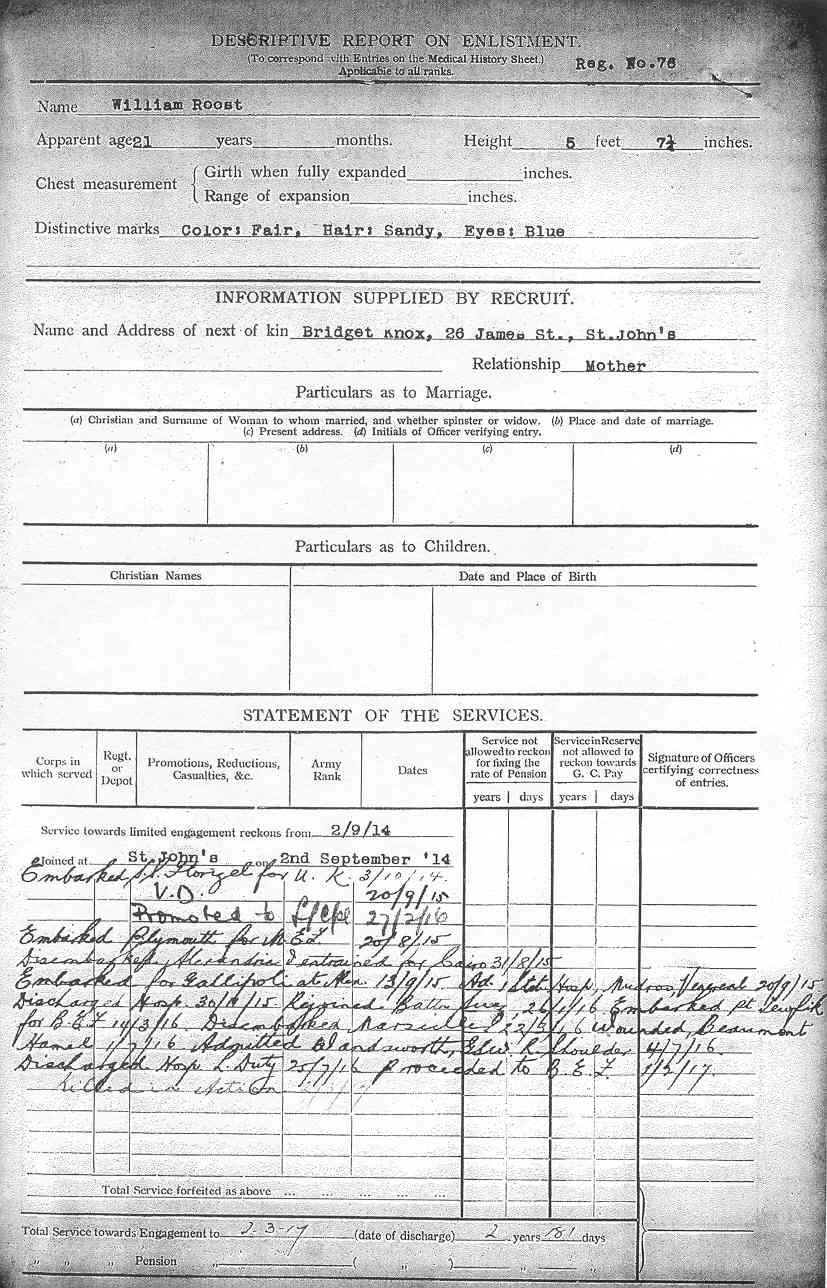 DESCRIPTIVE REPORT ON ENLISTMENT.
(To correspond with Entries on the Medical History Sheet.)
Applicable to all ranks.
Reg. No.76
Name William Roost
Apparent age 21 years months. Height 5 feet 7½ inches.
Chest measurement { Girth when fully expanded inches.
Range of expansion inches.
Distinctive marks Color: Fair, Hair: Sandy, Eyes: Blue
INFORMATION SUPPLIED BY RECRUIT.
Name and Address of next of kin Bridget Knox, 26 James St., St.John's
Relationship Mother
Particulars as to Marriage.
(a) Christian and Surname of Woman to whom married, and whether spinster or widow. (b) Place and date of marriage.
(c) Present address. (d) Initials of Officer verifying entry.
(a) (b) (c) (d)
Particulars as to Children.
Christian Names Date and Place of Birth
STATEMENT OF THE SERVICES.
Corps in which served
Regt. or Depot
Promotions, Reductions, Casualties, &c.
Army Rank
Dates
Service not allowed to reckon for fixing the rate of Pension
Service in Reserve not allowed to reckon towards G. C. Pay
Signature of Officers certifying correctness of entries.
years days years days
Service towards limited engagement reckons from 2/9/14
Joined at St.John's on 2nd September '14
Embarked S.S. Florizel for U. K. 3/10/14.
V.D. 20/9/15
Promoted to L/Cpl 27/2/16
Embarked Plymouth for M E F 20/8/15
Disembarked Alexandria & entrained for Cairo 31/8/15
Embarked for Gallipoli at Alex. 13/9/15. Ad. 1 Staty Hosp, Mudros, Venereal 20/9/15
Discharged Hosp. 30/ /15 Rejoined Battn Suez, 26/1/16 Embarked Pt Tewfik
for B.E.F 14/3/16. Disembarked Marseilles 22/3/16 Wounded, Beaumont
Hamel 1/7/16 Admitted Wandsworth, GSW. L. Shoulder 4/7/16.
Discharged Hosp L. Duty 25/7/16 Proceeded to B. E. F. 1/2/17.
Killed in Action
Total Service forfeited as above ... ... ... ...
Total Service towards Engagement to 2-3-17 (date of discharge) 2 years 181 days
" " " Pension " ( " ) " "